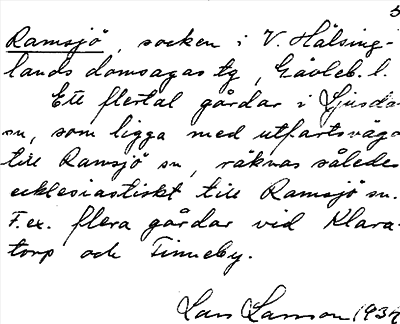 5
Ramsjö, socken i V. Hälsing-
lands domsagas tg, Gävleb. l.
Ett flertal gårdar i Ljusdals
sn, som ligga med utfartsväg
till Ramsjö sn, räknas således
ecklesiastiskt till Ramsjö sn.
T.ex. flera gårdar vid Klara-
torp och Finneby.
Lars Larsson